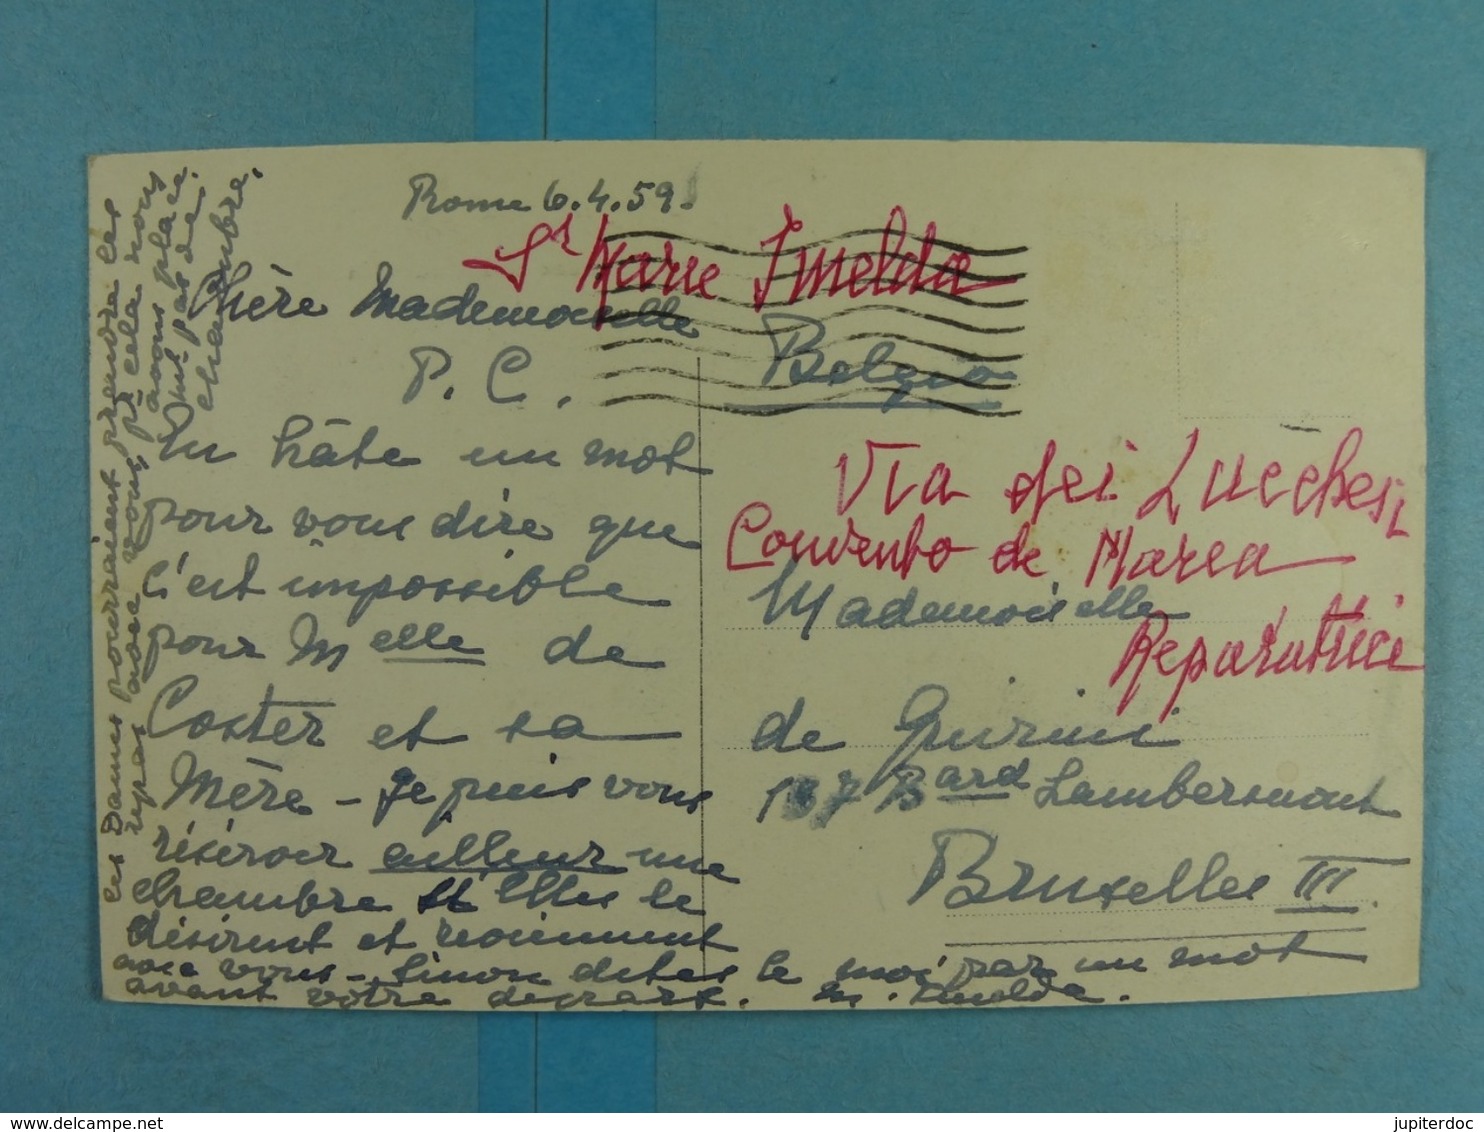 Rome 6.4.59.
Sr Marie Imelda
Chère Mademoiselle
P. C.
En hâte un mot
pour vous dire que
c'est impossible
pour Melle de
Coster et sa
Mère - je puis vous
réserver ailleur une
chambre si Elles le
désirent et reviennent
avec vous - sinon dites le moi par un mot
avant votre départ. M. Imelda.
Les Dames pourraient prendre les
repas avec vous, pr cela nous
avons place.
mais pas de
chambre.
Belgio
Via dei Lucchesi
Convento de Maria
Reparatrice
Mademoiselle
de Quirini
137 Bard Lambermont
Bruxelles III.
www.delcampe.net
jupiterdoc